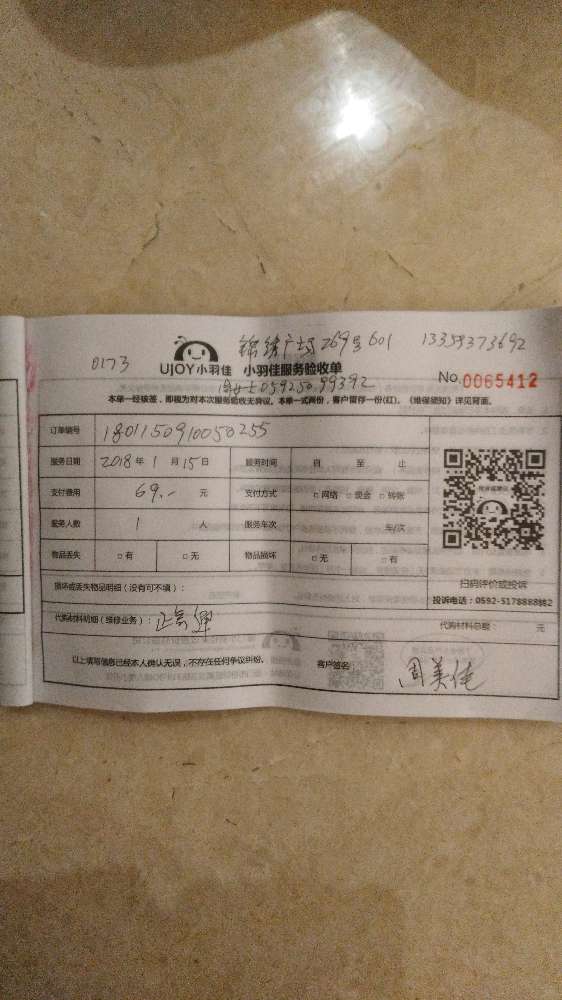 锦绣广场269号601 13359373692
0173
UJOY小羽佳 小羽佳服务验收单
No.0065412
059250.99392
本单一经核签，即视为对本次服务验收无异议。本单一式两份，客户留存一份(红)。《维保须知》详见背面。
订单编号 180115091005O255
服务日期 2018年1月15日 服务时间 自 至 止
支付费用 69.- 元 支付方式 □网络 □现金 □转账
服务人数 1 人 服务车次 车/次
物品丢失 □有 □无 物品损坏 □无 □有
扫码评价或投诉
损坏或丢失物品明细（没有可不填）：
投诉电话：0592-5178888转2
代购材料明细（维修业务）： 代购材料总额： 元
以上填写信息已经本人确认无误，不存在任何争议纠纷。 客户签名： 周美佳